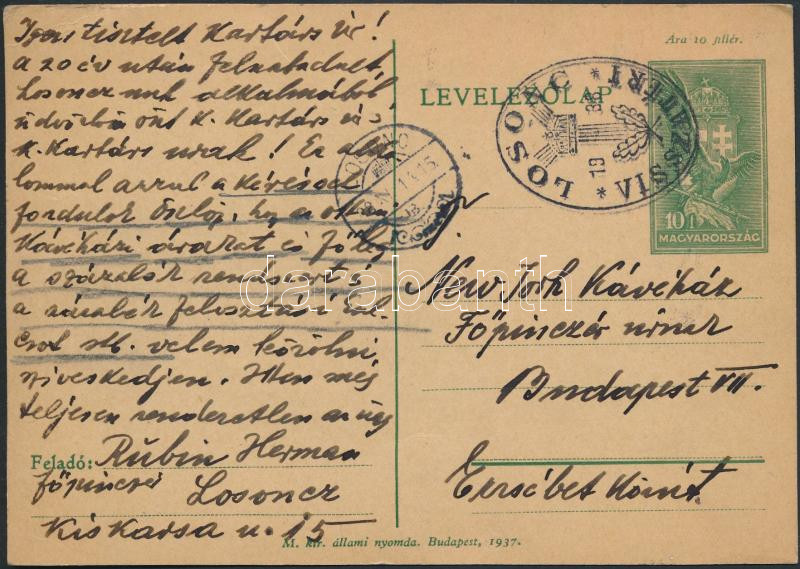 Igen tisztelt Kartárs úr!
A 20 év után felszabadult
Losoncznak alkalmából
üdvözlöm önt K. Kartárs úr és
K. Kartárs urak! Ez alka
lommal azzal a kéréssel
fordulok Önhöz, hogy az ottani
Kávéházi árazat és főleg
a százalék rendszert s
a
velem közölni
sziveskedjen. Itten még
teljesen rendezetlen az ügy
Feladó: Rubin Herman
főpincér
Losoncz
Kiskassa u. 15
Ára 10 fillér.
LEVELEZŐLAP
LOSONC
1938
10 f
MAGYARORSZÁG
LOSONC
New York Kávéház
Főpinczér úrnak
Budapest VII.
Erzsébet Körút
M. kir. állami nyomda. Budapest, 1937.
darabanth